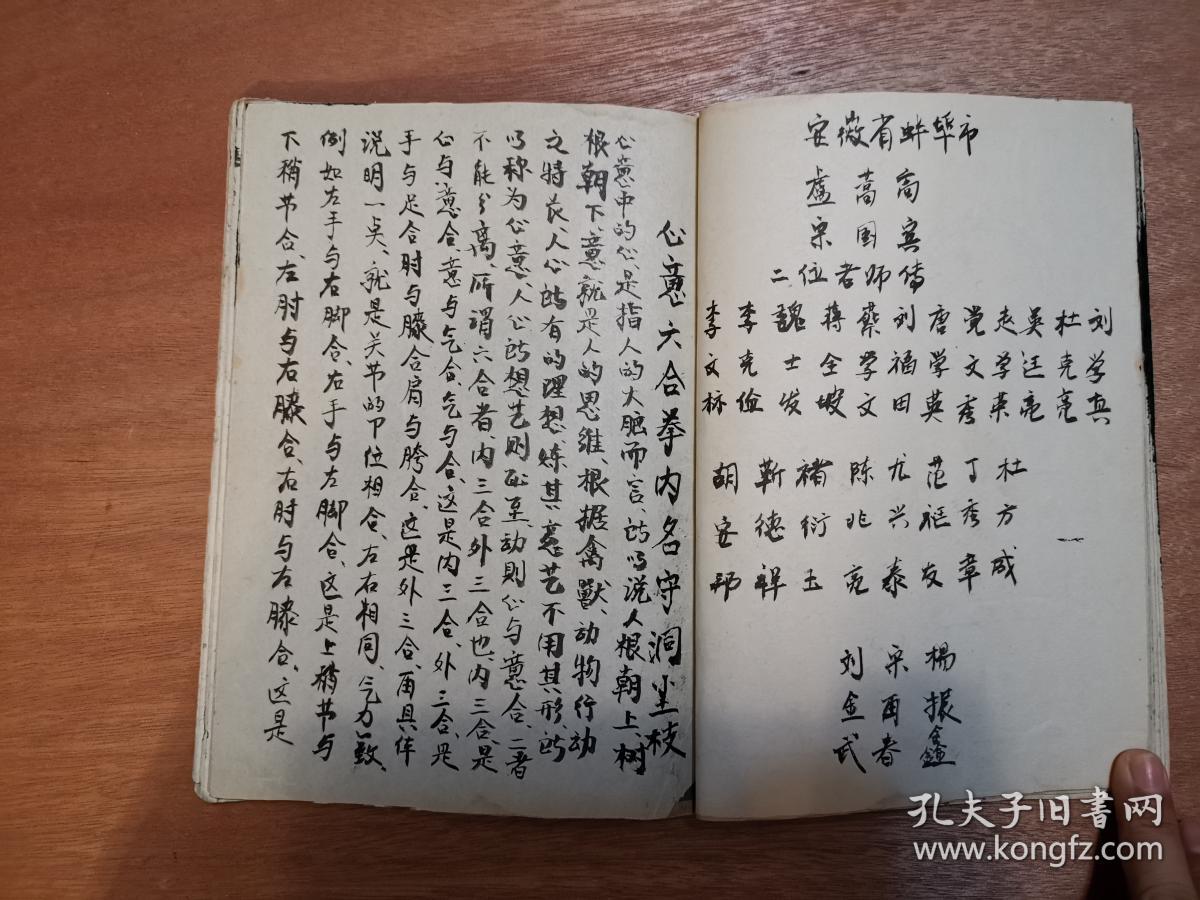 安徽省蚌埠市
盧嵩高
宋国宾
二位老师传
刘学真
杜克亮
吴廷亮
赵学荣
党文秀
唐学英
刘福田
蔡学文
蒋全坡
魏士发
李克俭
李文标
杜方成
丁秀章
范祖友
尤兴泰
陈兆亮
褚衍玉
靳德祥
胡安邦
杨振鑫
宋酉春
刘金武
心意六合拳内名守洞尘枝
心意中的心、是指人的大脑而言、所以说人根朝上、树
根朝下、意就是人的思维、根据禽獸、动物行动
之特長、人心所有的理想、炼其意艺不用其形、所
以称为心意、人心所想艺则即至、动則心与意合、二者
不能分离、所谓六合者、内三合外三合也、内三合是
心与意合、意与气合、气与合、这是内三合、外三合、是
手与足合肘与膝合肩与胯合、这是外三合、再具体
说明一点、就是关节的卩位相合、左右相同、气力一致、
例如左手与右脚合、右手与左脚合、这是上稍节与
下稍节合、左肘与右膝合、右肘与左膝合、这是
孔夫子旧书网
www.kongfz.com